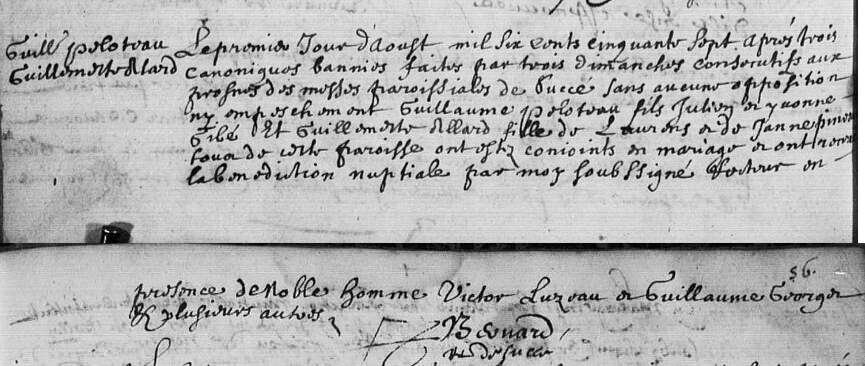 Guill peloteau
Guillemette Allard
Le premier Jour d'Aoust mil six cents cinquante sept apres trois
canoniques bannies faites par trois dimanches consecutifs aux
prosnes des messes paroissiales de Succe sans aucune opposition
ny empeschement Guillaume peloteau fils Julien et yvonne
Gibé Et Guillemette Allard fille de Laurens et de Janne pineau
tous de cette paroisse ont estez conioints en mariage et ont receu
la benediction nuptiale par moy soubssigné Recteur en
56.
presence de Noble homme Victor Luzeau et Guillaume Georget
& plusieurs autres
Bernard
Rr de Succe